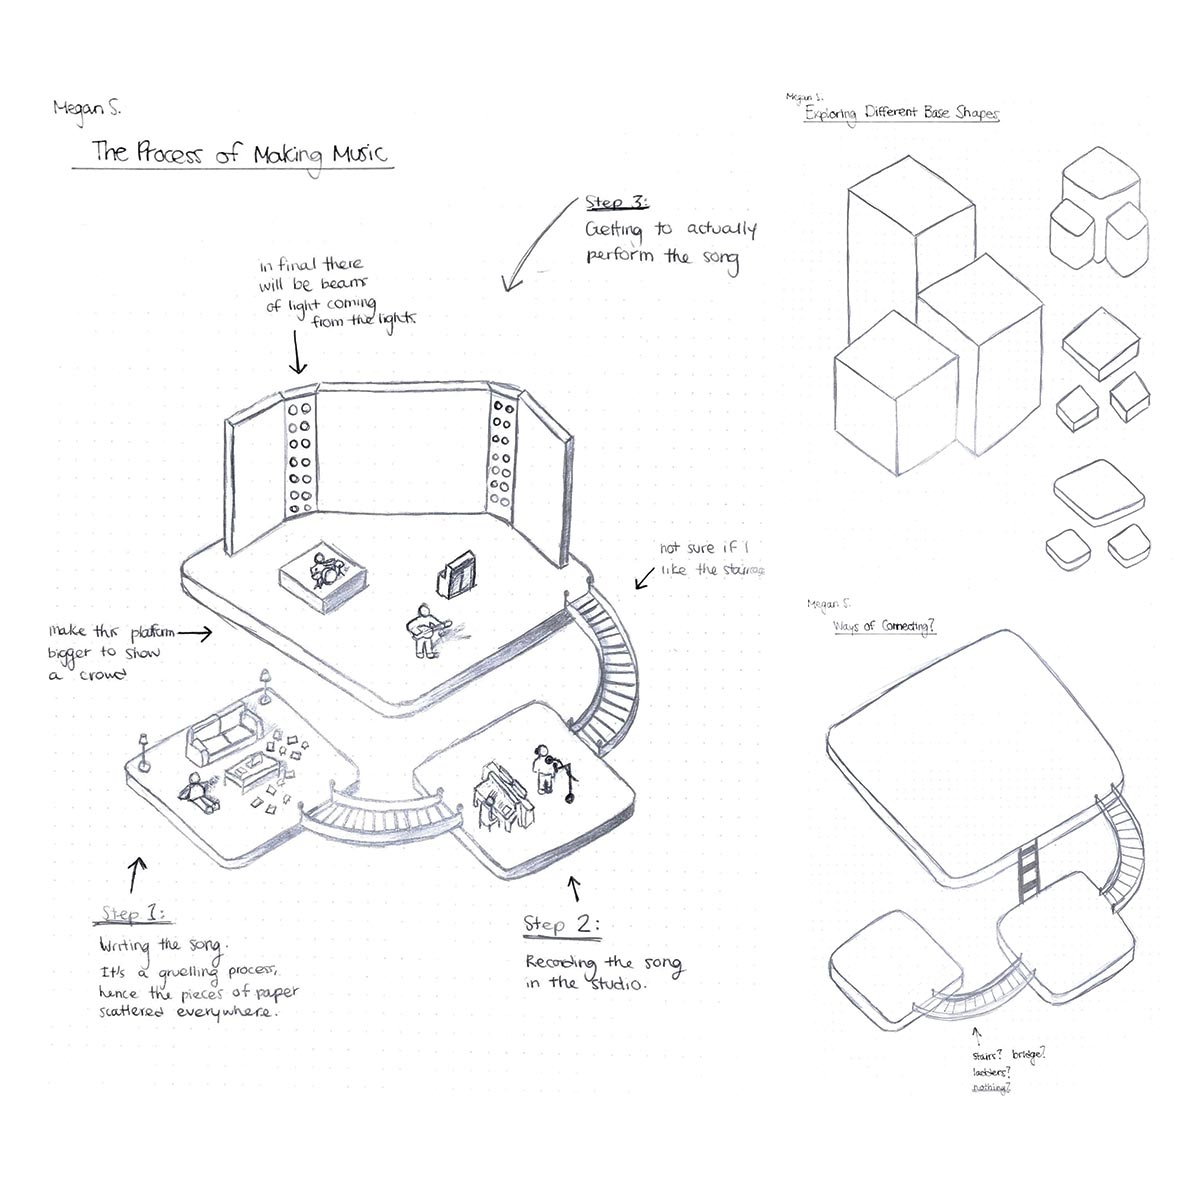 Megan S.
The Process of Making Music
Step 3:
Getting to actually
perform the song
in final there
will be beams
of light coming
from the lights.
not sure if I
like the staircase
make this platform
bigger to show
a crowd
Step 1:
Writing the song.
It's a gruelling process,
hence the pieces of paper
scattered everywhere.
Step 2:
Recording the song
in the studio.
Megan S.
Exploring Different Base Shapes
Megan S.
Ways of Connecting?
stairs? bridge?
ladders?
nothing?